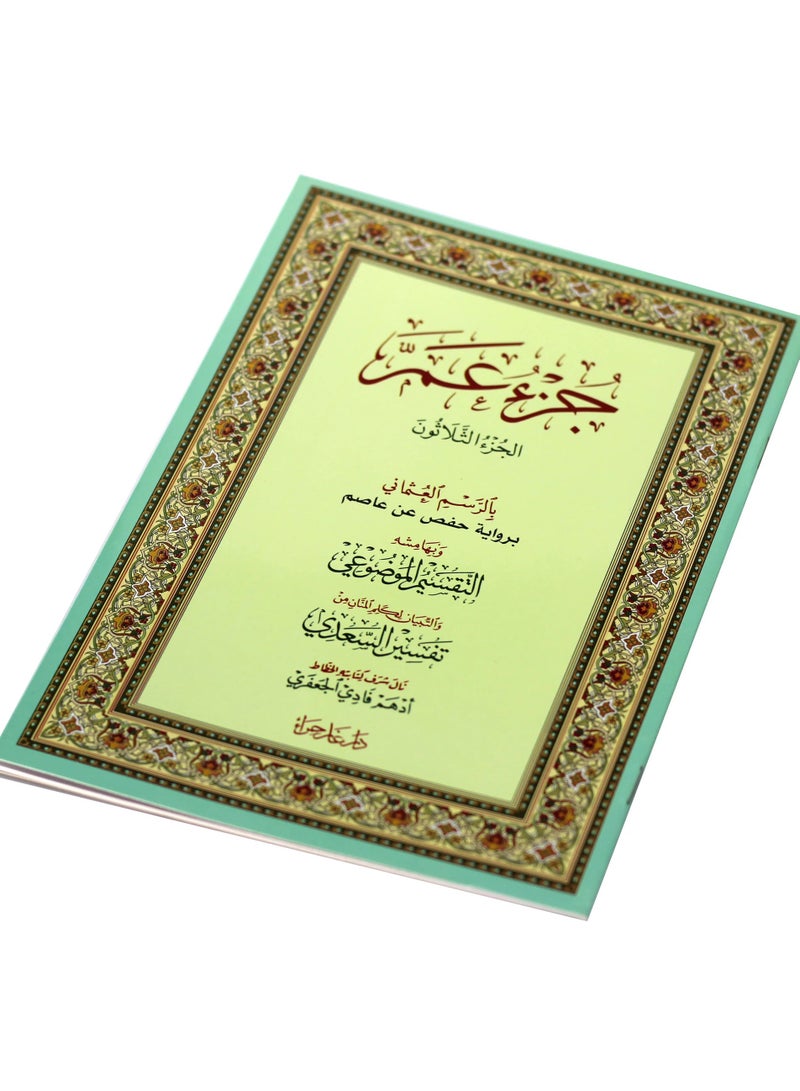 جُزْءُ عَمَّ
الجُزْءُ الثَّلَاثُونَ
بِالرَّسْمِ العُثْمَانِي
برواية حفص عن عاصم
وَبَهَامِشِهِ
التَّقْسِيْمُ المَوْضُوْعِي
وَالتِّبْيَانُ لِكَلِمِ المَنَّانِ مِنْ
تَفْسِيْرِ السَّعْدِي
نَالَ شَرَفَ كِتَابَتِهِ الخَطَّاط
أَدْهَمْ فَادِي الجَعْفَرِي
دار غار حراء